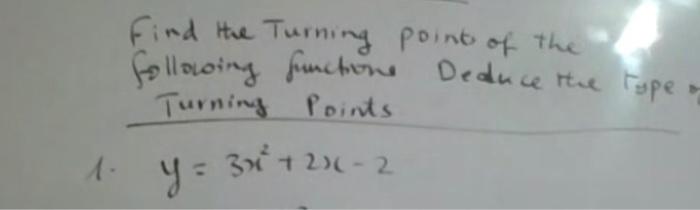 Find the Turning points of the
following functions Deduce the Type
Turning Points
1. y = 3x² + 2x - 2